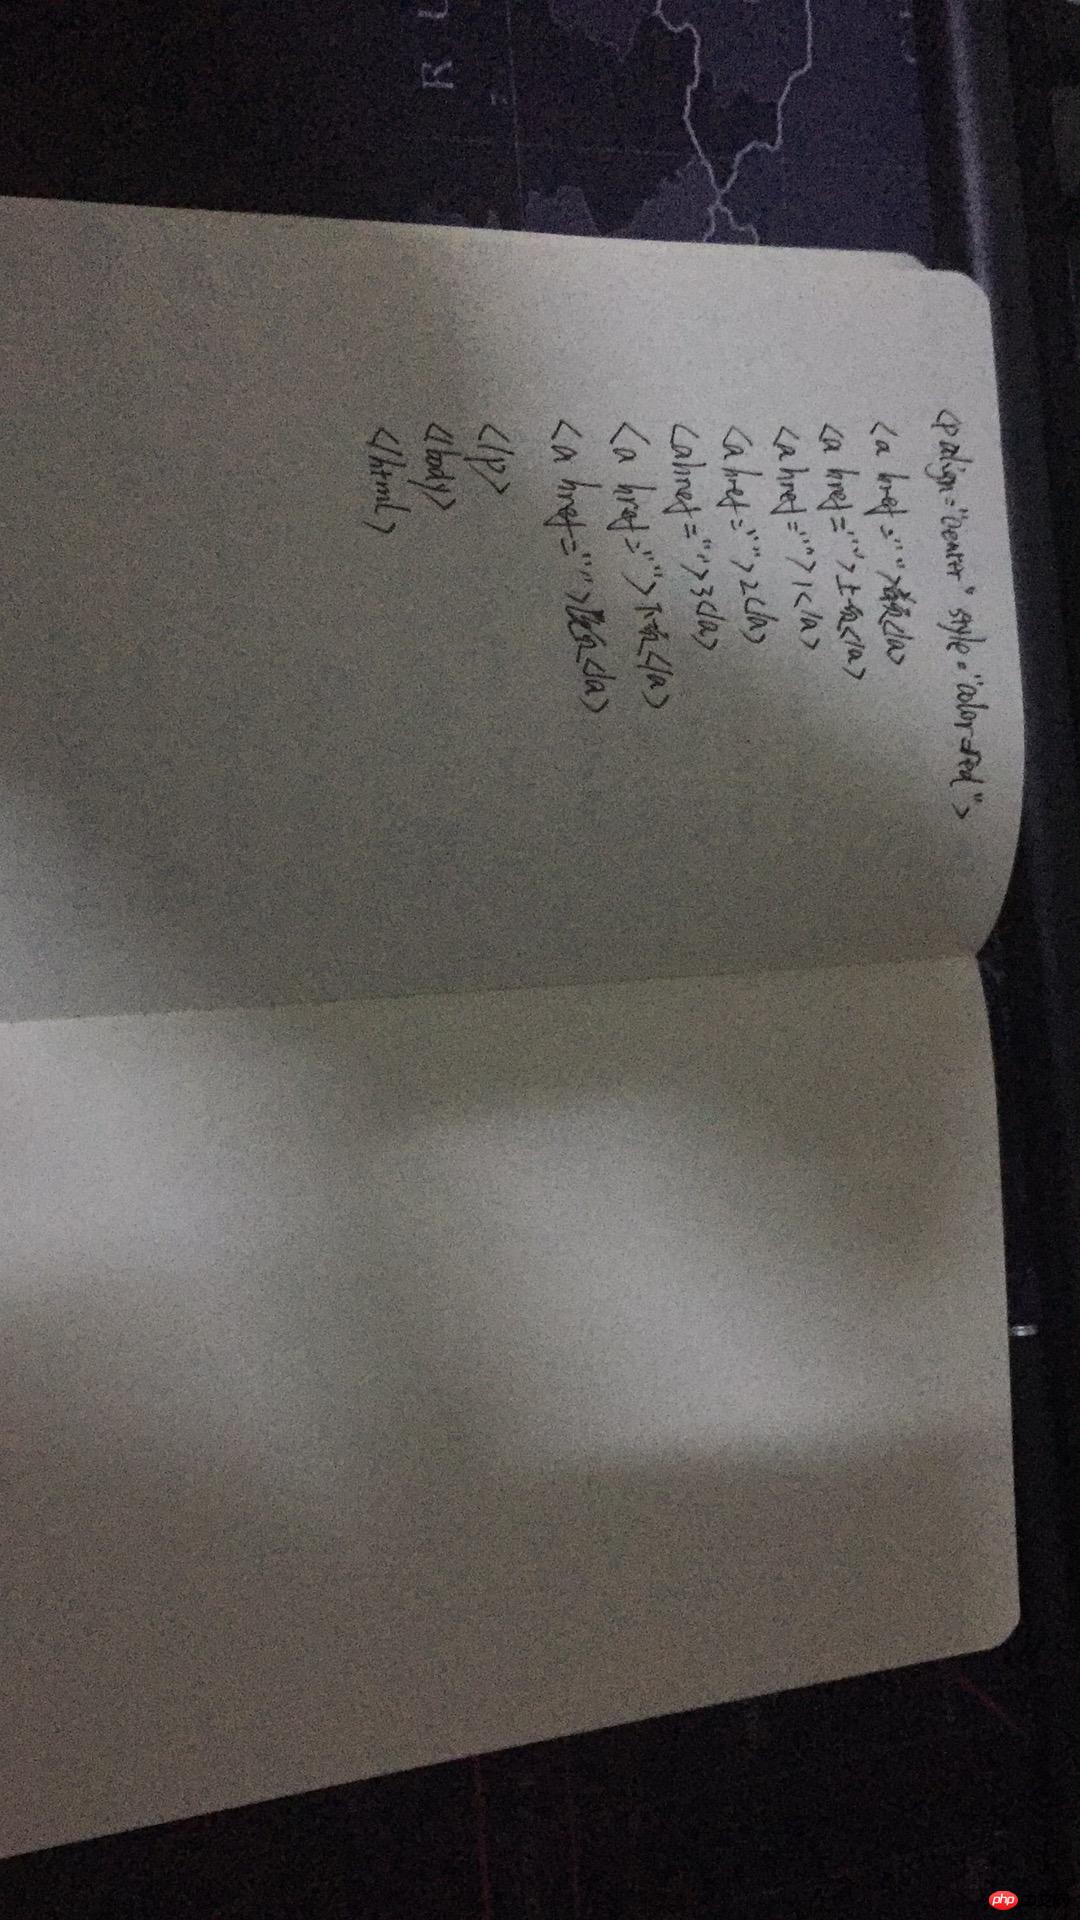 <p align="center" style="color=red">
<a href="">首页</a>
<a href="">上一页</a>
<a href="">1</a>
<a href="">2</a>
<a href="">3</a>
<a href="">下一页</a>
<a href="">尾页</a>
</p>
</body>
</html>
R U
php